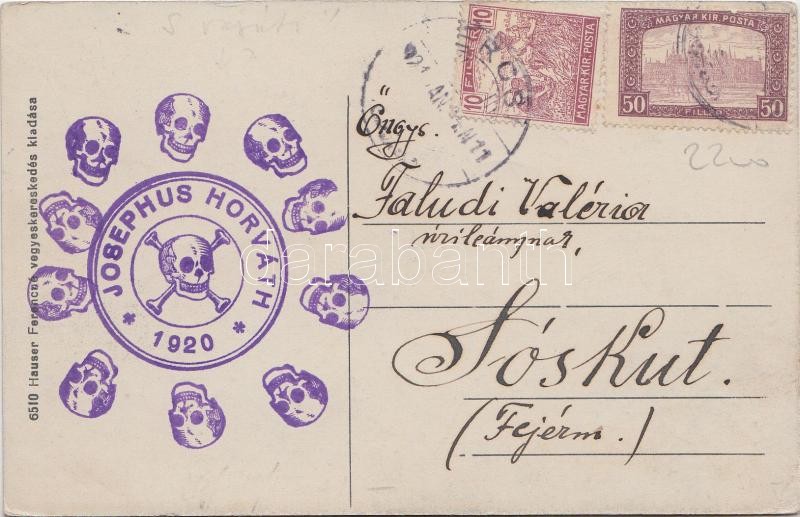 10 FILLÉR MAGYAR KIR. POSTA
MAGYAR KIR. POSTA
50 FILLÉR 50
921 JAN
N11
2200
Őngys.
Faludi Valéria
úrileánynak,
Sóskut.
(Fejérm.)
JOSEPHUS HORVÁTH
* 1920 *
6510 Hauser Ferencné vegyeskereskedés kiadása
darabanth